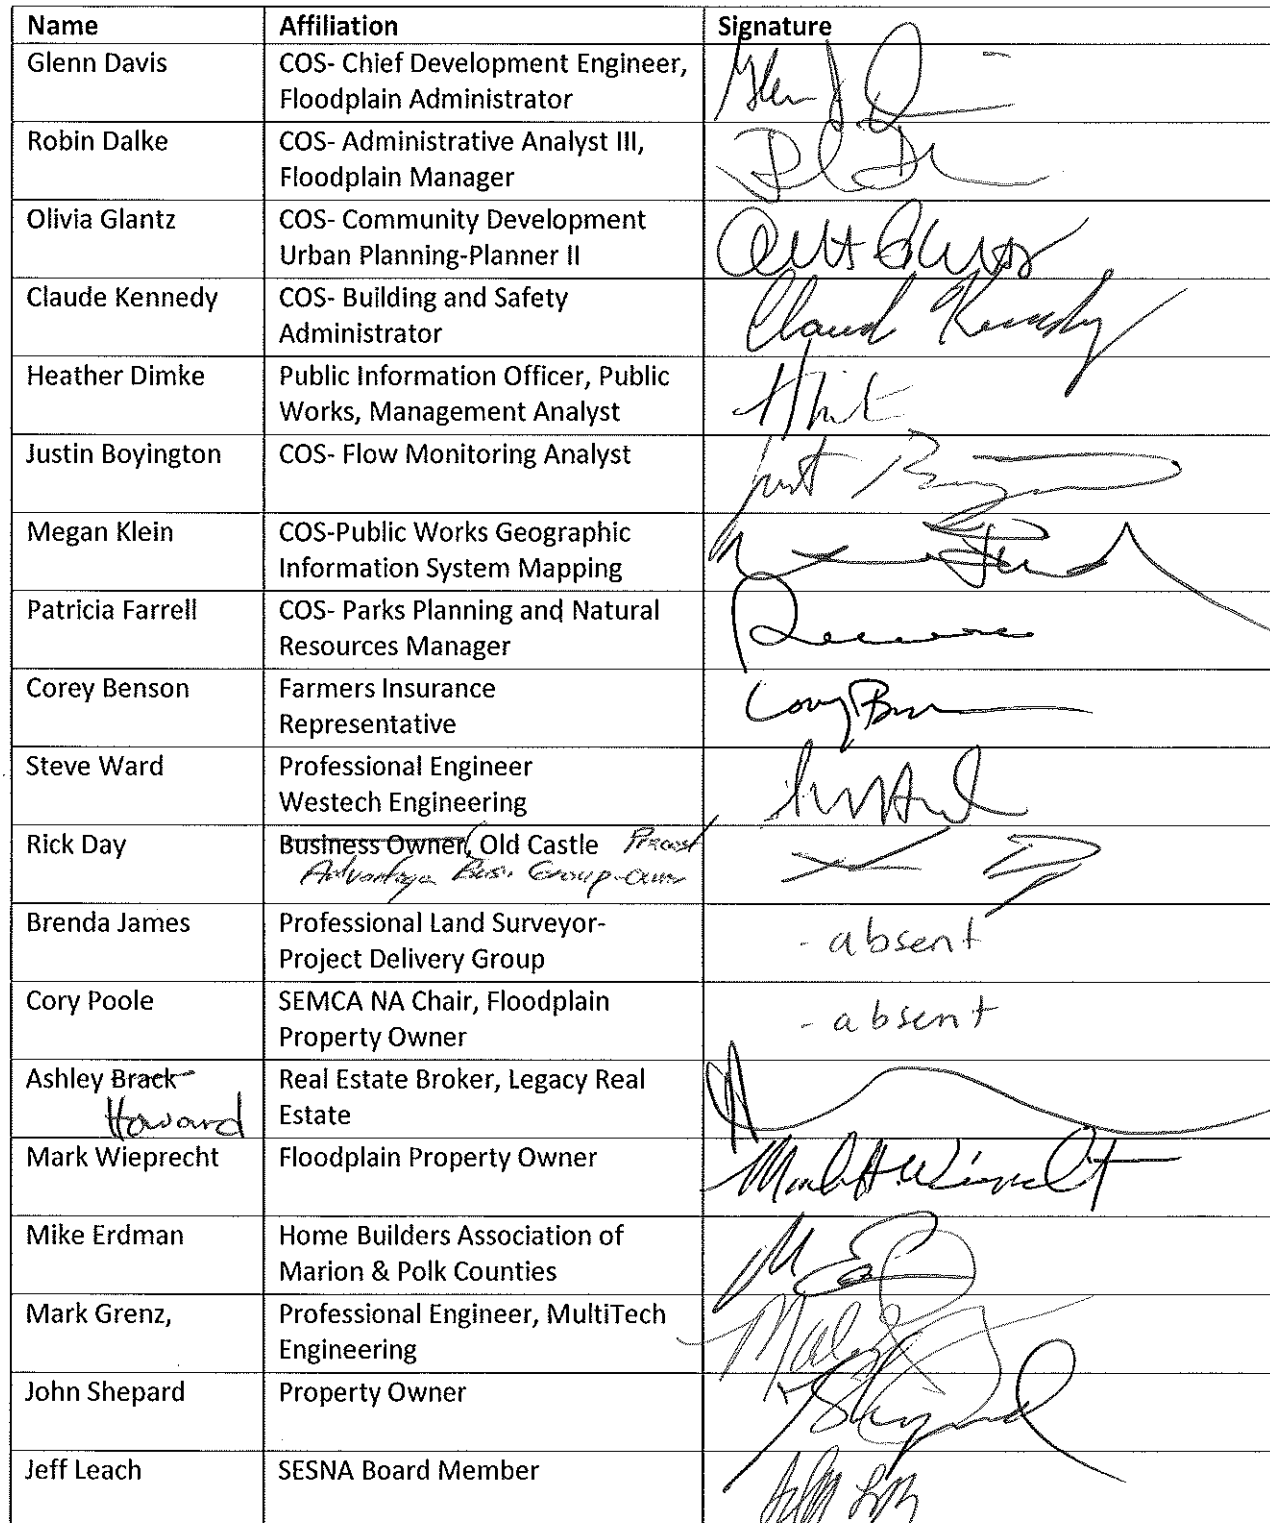 Name Affiliation Signature
Glenn Davis COS- Chief Development Engineer,
Floodplain Administrator
Robin Dalke COS- Administrative Analyst III,
Floodplain Manager
Olivia Glantz COS- Community Development
Urban Planning-Planner II
Claude Kennedy COS- Building and Safety Claud Kennedy
Administrator
Heather Dimke Public Information Officer, Public
Works, Management Analyst
Justin Boyington COS- Flow Monitoring Analyst
Megan Klein COS-Public Works Geographic
Information System Mapping
Patricia Farrell COS- Parks Planning and Natural
Resources Manager
Corey Benson Farmers Insurance
Representative
Steve Ward Professional Engineer
Westech Engineering
Rick Day Business Owner, Old Castle Precast
Advantage Busi. Group-owner
Brenda James Professional Land Surveyor- - absent
Project Delivery Group
Cory Poole SEMCA NA Chair, Floodplain - absent
Property Owner
Ashley Brack Real Estate Broker, Legacy Real
Howard Estate
Mark Wieprecht Floodplain Property Owner
Mike Erdman Home Builders Association of
Marion & Polk Counties
Mark Grenz, Professional Engineer, MultiTech
Engineering
John Shepard Property Owner
Jeff Leach SESNA Board Member